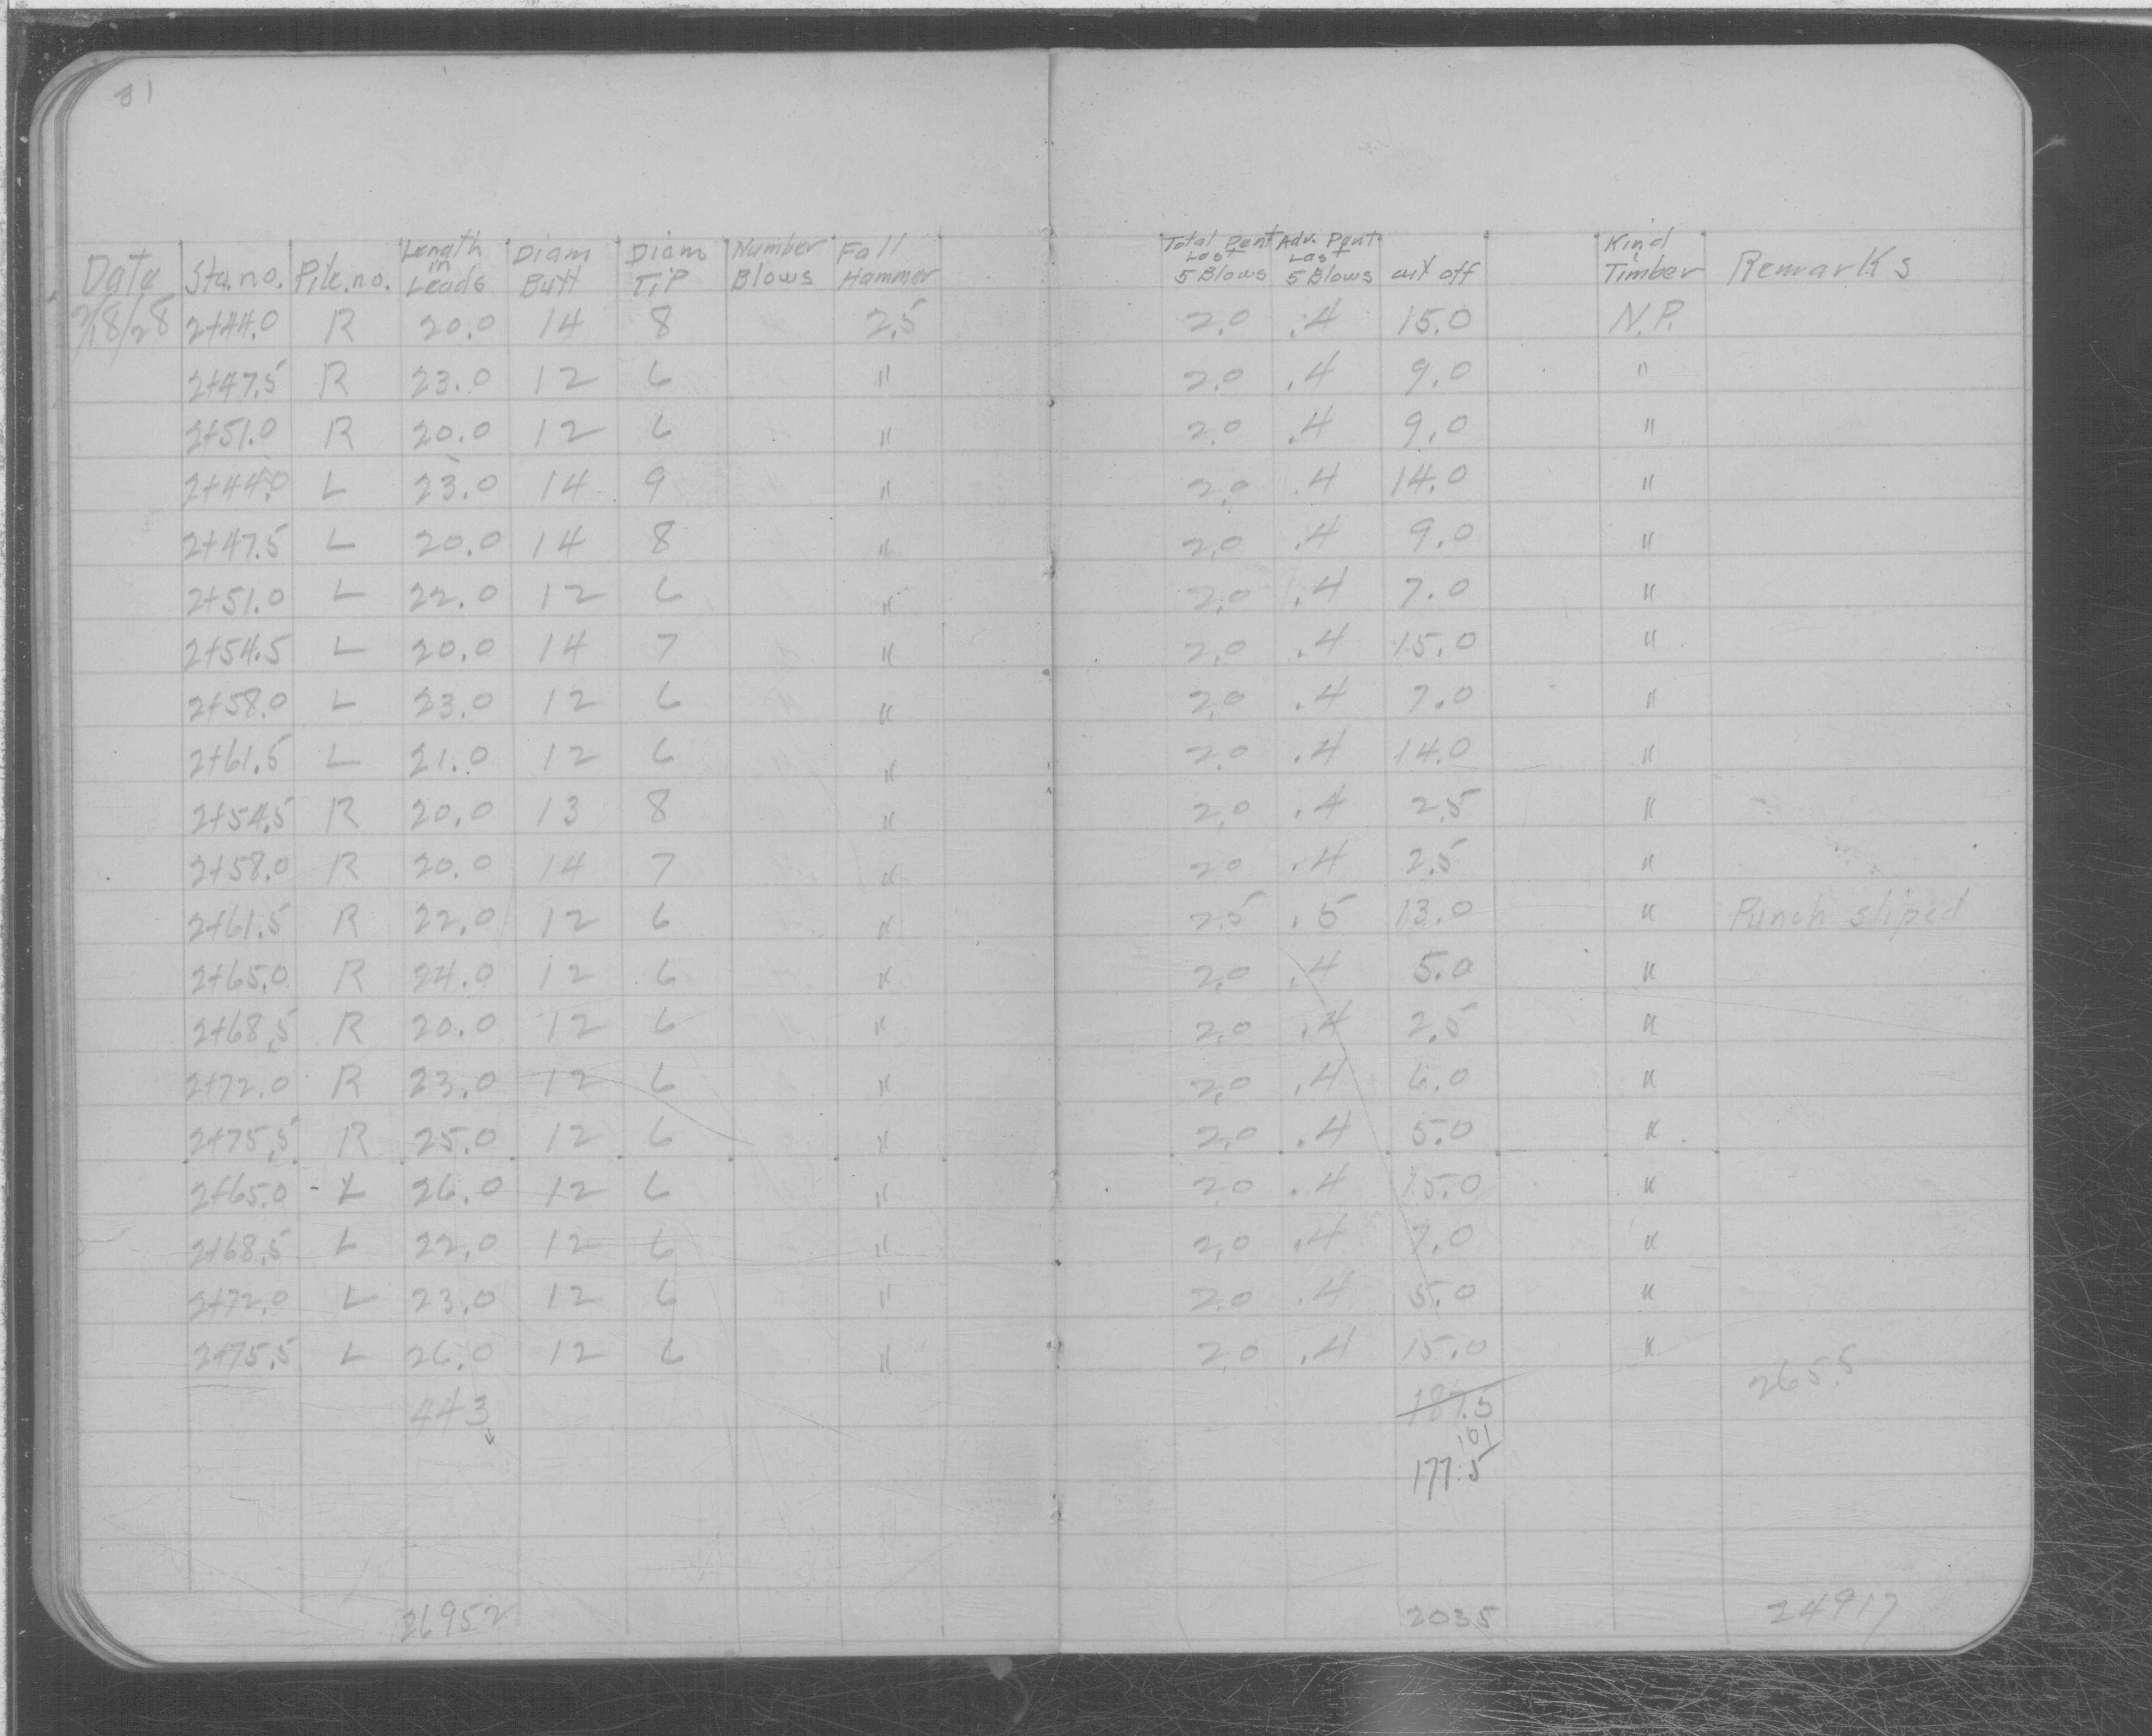 31
Date Sta.no. Pile.no. Length in Leads Diam Butt Diam Tip Number Blows Fall Hammer Total Pent Last 5 Blows Adv. Pent Last 5 Blows cut off Kind Timber Remarks
2/18/28 2+44.0 R 20.0 14 8 2.5 2.0 .4 15.0 N.P.
2+47.5 R 23.0 12 6 " 2.0 .4 9.0 "
2+51.0 R 20.0 12 6 " 2.0 .4 9.0 "
2+44.0 L 23.0 14 9 " 2.0 .4 14.0 "
2+47.5 L 20.0 14 8 " 2.0 .4 9.0 "
2+51.0 L 22.0 12 6 " 2.0 .4 7.0 "
2+54.5 L 20.0 14 7 " 2.0 .4 15.0 "
2+58.0 L 23.0 12 6 " 2.0 .4 7.0 "
2+61.5 L 21.0 12 6 " 2.0 .4 14.0 "
2+54.5 R 20.0 13 8 " 2.0 .4 2.5 "
2+58.0 R 20.0 14 7 " 2.0 .4 2.5 "
2+61.5 R 22.0 12 6 " 2.5 .5 13.0 " Punch sliped
2+65.0 R 24.0 12 6 " 2.0 .4 5.0 "
2+68.5 R 20.0 12 6 " 2.0 .4 2.5 "
2+72.0 R 23.0 12 6 " 2.0 .4 6.0 "
2+75.5 R 25.0 12 6 " 2.0 .4 5.0 "
2+65.0 - L 26.0 12 6 " 2.0 .4 15.0 "
2+68.5 L 22.0 12 6 " 2.0 .4 7.0 "
2+72.0 L 23.0 12 6 " 2.0 .4 5.0 "
2+75.5 L 26.0 12 6 " 2.0 .4 15.0 "
443 187.5 265.5
177.5
26952 2035 24917